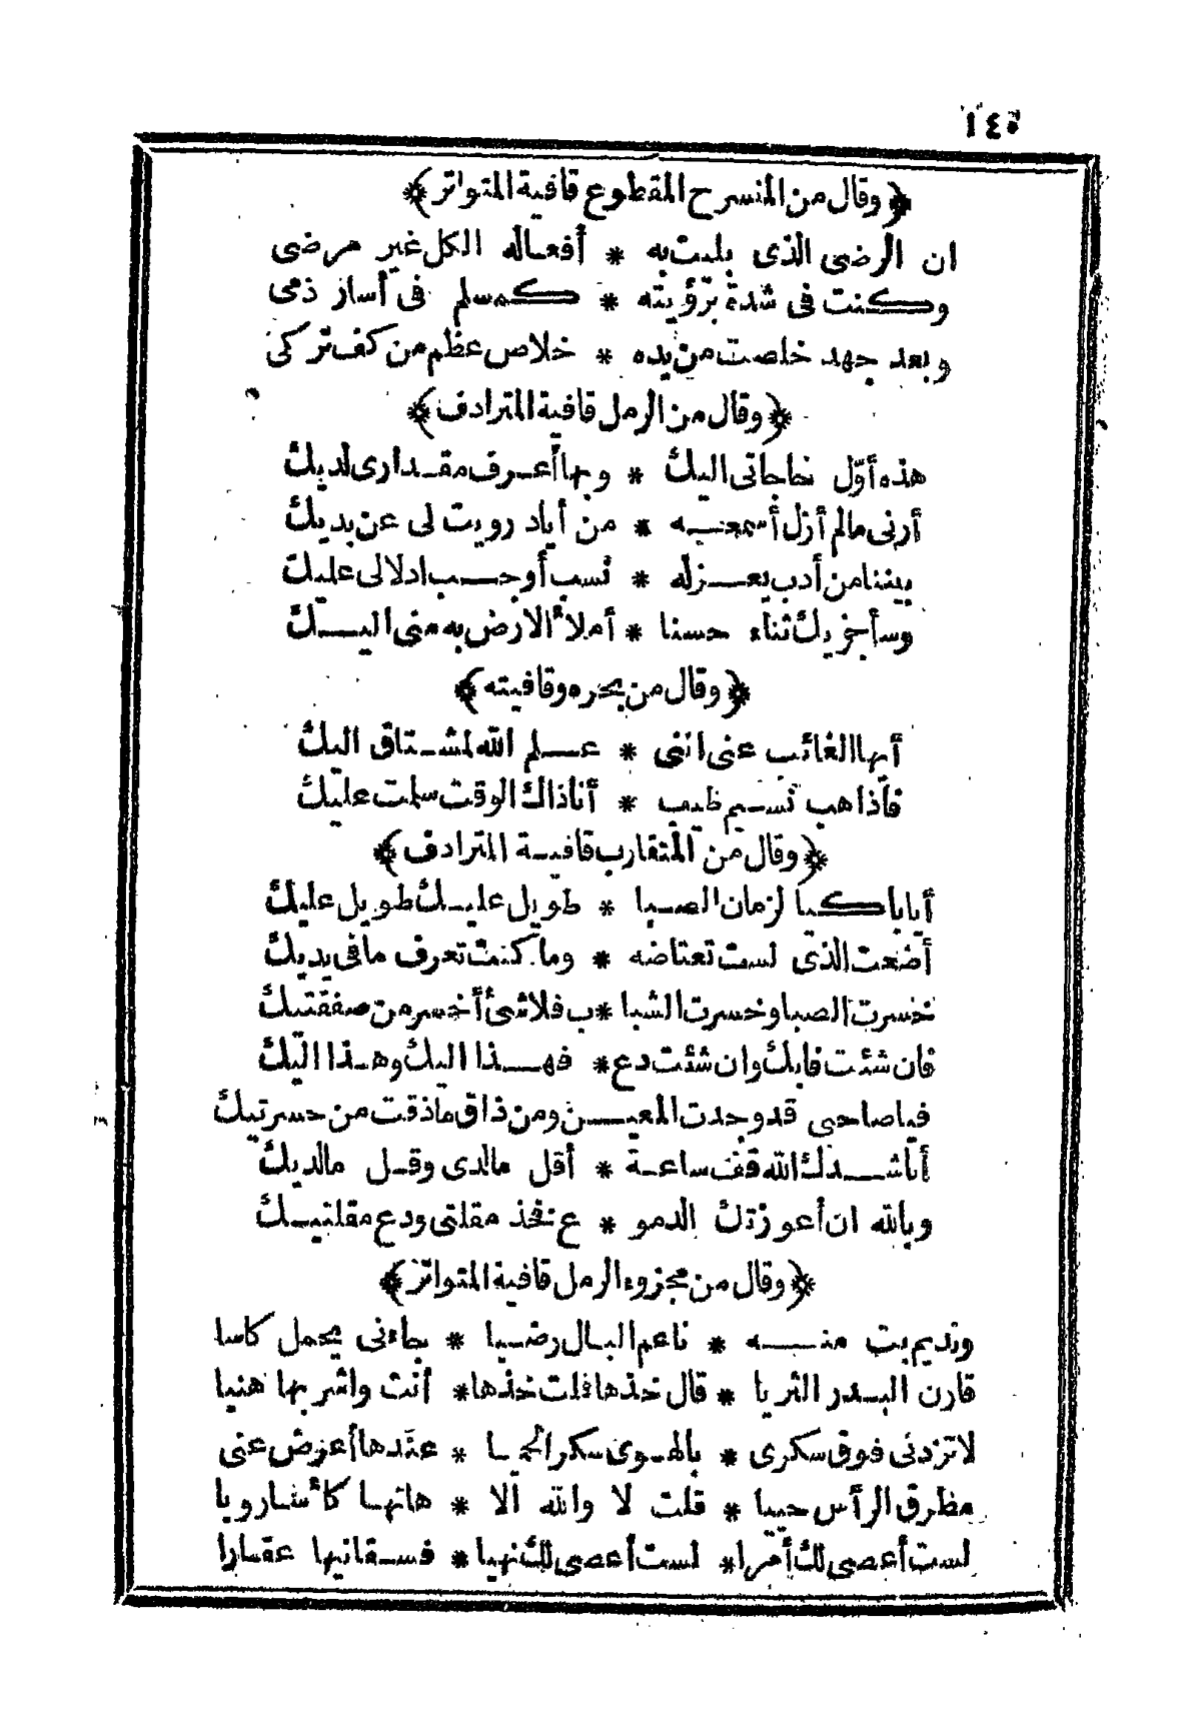 ١٤٥
﴿وقال من المنسرح المقطوع قافية المتواتر﴾
ان الرضى الذى بليت به * أفعاله الكل غير مرضى
وكنت فى شدة برؤيته * كمسلم فى أسار ذمى
وبعد جهد خلصت من يده * خلاص عظم من كف تركى
﴿وقال من الرمل قافية المترادف﴾
هذه أوّل حاجاتى اليك * وبها أعرف مقدارى لديك
أرنى مالم أزل أسمع به * من أياد رويت لى عن يديك
بيننا من أدب يعزله * نسب أوجب ادلالى عليك
وسأجزيك ثناء حسنا * أملأ الارض به منى اليك
﴿وقال من بحره وقافيته﴾
أيها الغائب عنى اننى * علم الله لمشتاق اليك
فاذا هب نسيم طيب * أنا ذاك الوقت سلمت عليك
﴿وقال من المتقارب قافية المترادف﴾
أيا باكيا لزمان الصبا * طويل عليك طويل عليك
أضعت الذى لست تعتاضه * وما كنت تعرف مافى يديك
خسرت الصبا وخسرت الشبا * ب فلا شئ أخسر من صفقتيك
فان شئت فابك وان شئت دع * فهذا اليك وهذا اليك
فيا صاحبى قد وجدت المعين ومن ذاق ماذقت من حسرتيك
أناشدك الله قف ساعة * أقل مالدى وقل مالديك
وبالله ان أعوزتك الدمو * ع فخذ مقلتى ودع مقلتيك
﴿وقال من مجزوء الرمل قافية المتواتر﴾
ونديم بت منه * ناعم البال رضيا * جاءنى يحمل كاسا
قارن البدر الثريا * قال خذها قلت خذها * أنت واشربها هنيا
لا تزدنى فوق سكرى * بالهوى سكر الحميا * عندها أعرض عنى
مطرق الرأس حييا * قلت لا والله الا * هاتها كأسا رويا
لست أعصى لك أمرا * لست أعصى لك نهيا * فسقانيها عقارا